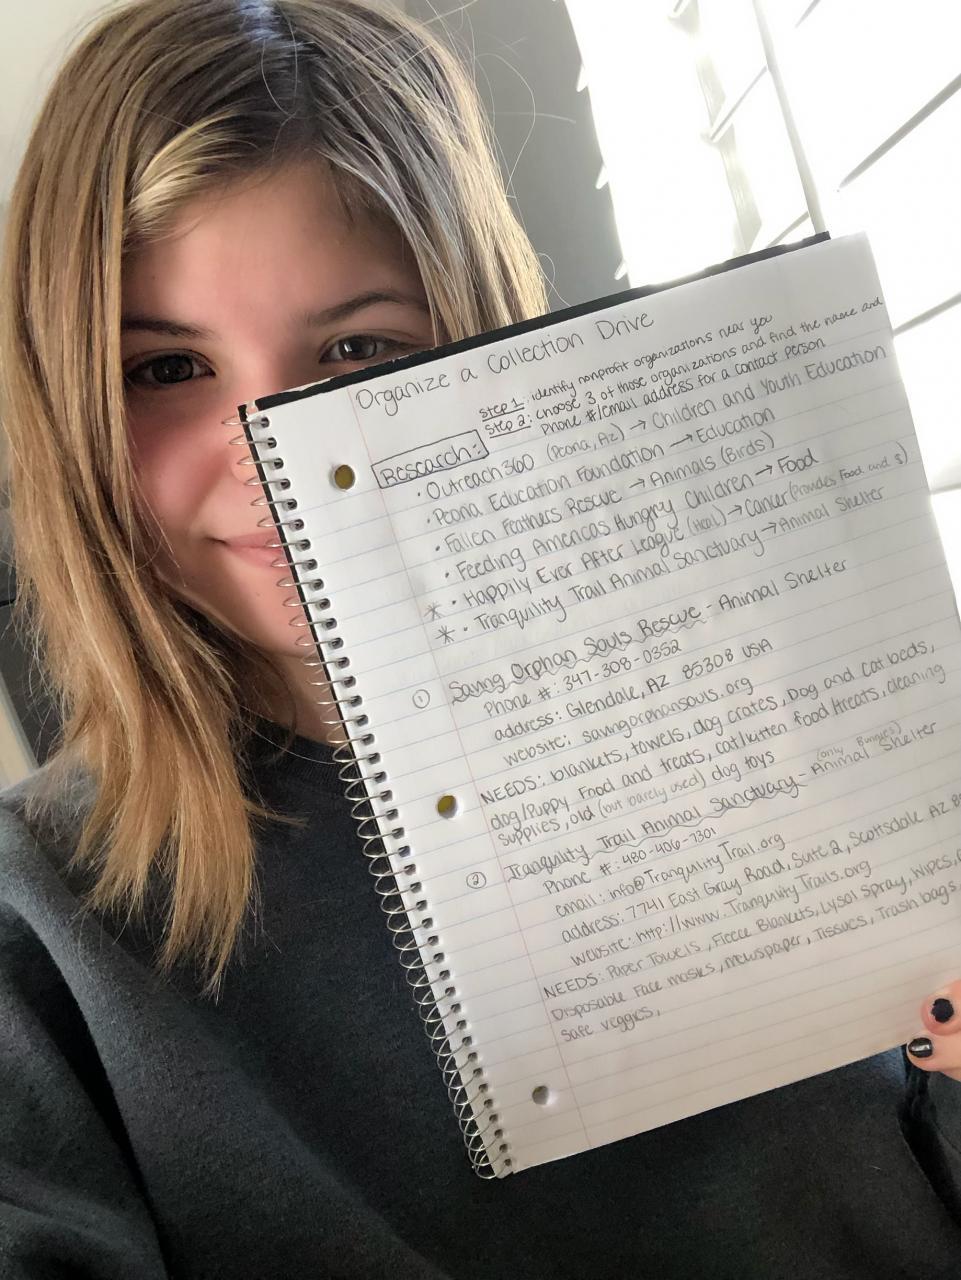 Organize a Collection Drive
Step 1: identify nonprofit organizations near you
Step 2: choose 3 of those organizations and find the name and
phone #/email address for a contact person
Research:
• Outreach360 (Peoria, AZ) → Children and Youth Education
• Peoria Education Foundation → Education
• Fallen Feathers Rescue → Animals (Birds)
• Feeding Americas Hungry Children → Food
* • Happily Ever After League (Heal) → Cancer (Provides Food and $)
* • Tranquility Trail Animal Sanctuary → Animal Shelter
① Saving Orphan Souls Rescue - Animal Shelter
Phone #: 347-308-0352
address: Glendale, AZ 85308 USA
website: savingorphansouls.org
NEEDS: blankets, towels, dog crates, Dog and cat beds,
dog/puppy food and treats, cat/kitten food/treats, cleaning
supplies, old (but barely used) dog toys
② Tranquility Trail Animal Sanctuary - Animal Shelter (only Bunnies)
Phone #: 480-406-7301
email: info@TranquilityTrail.org
address: 7741 East Gray Road, Suite 2, Scottsdale AZ
website: http://www.TranquilityTrails.org
NEEDS: Paper Towels, Fleece Blankets, Lysol Spray, Wipes,
Disposable Face masks, newspaper, Tissues, Trash bags,
Safe veggies,